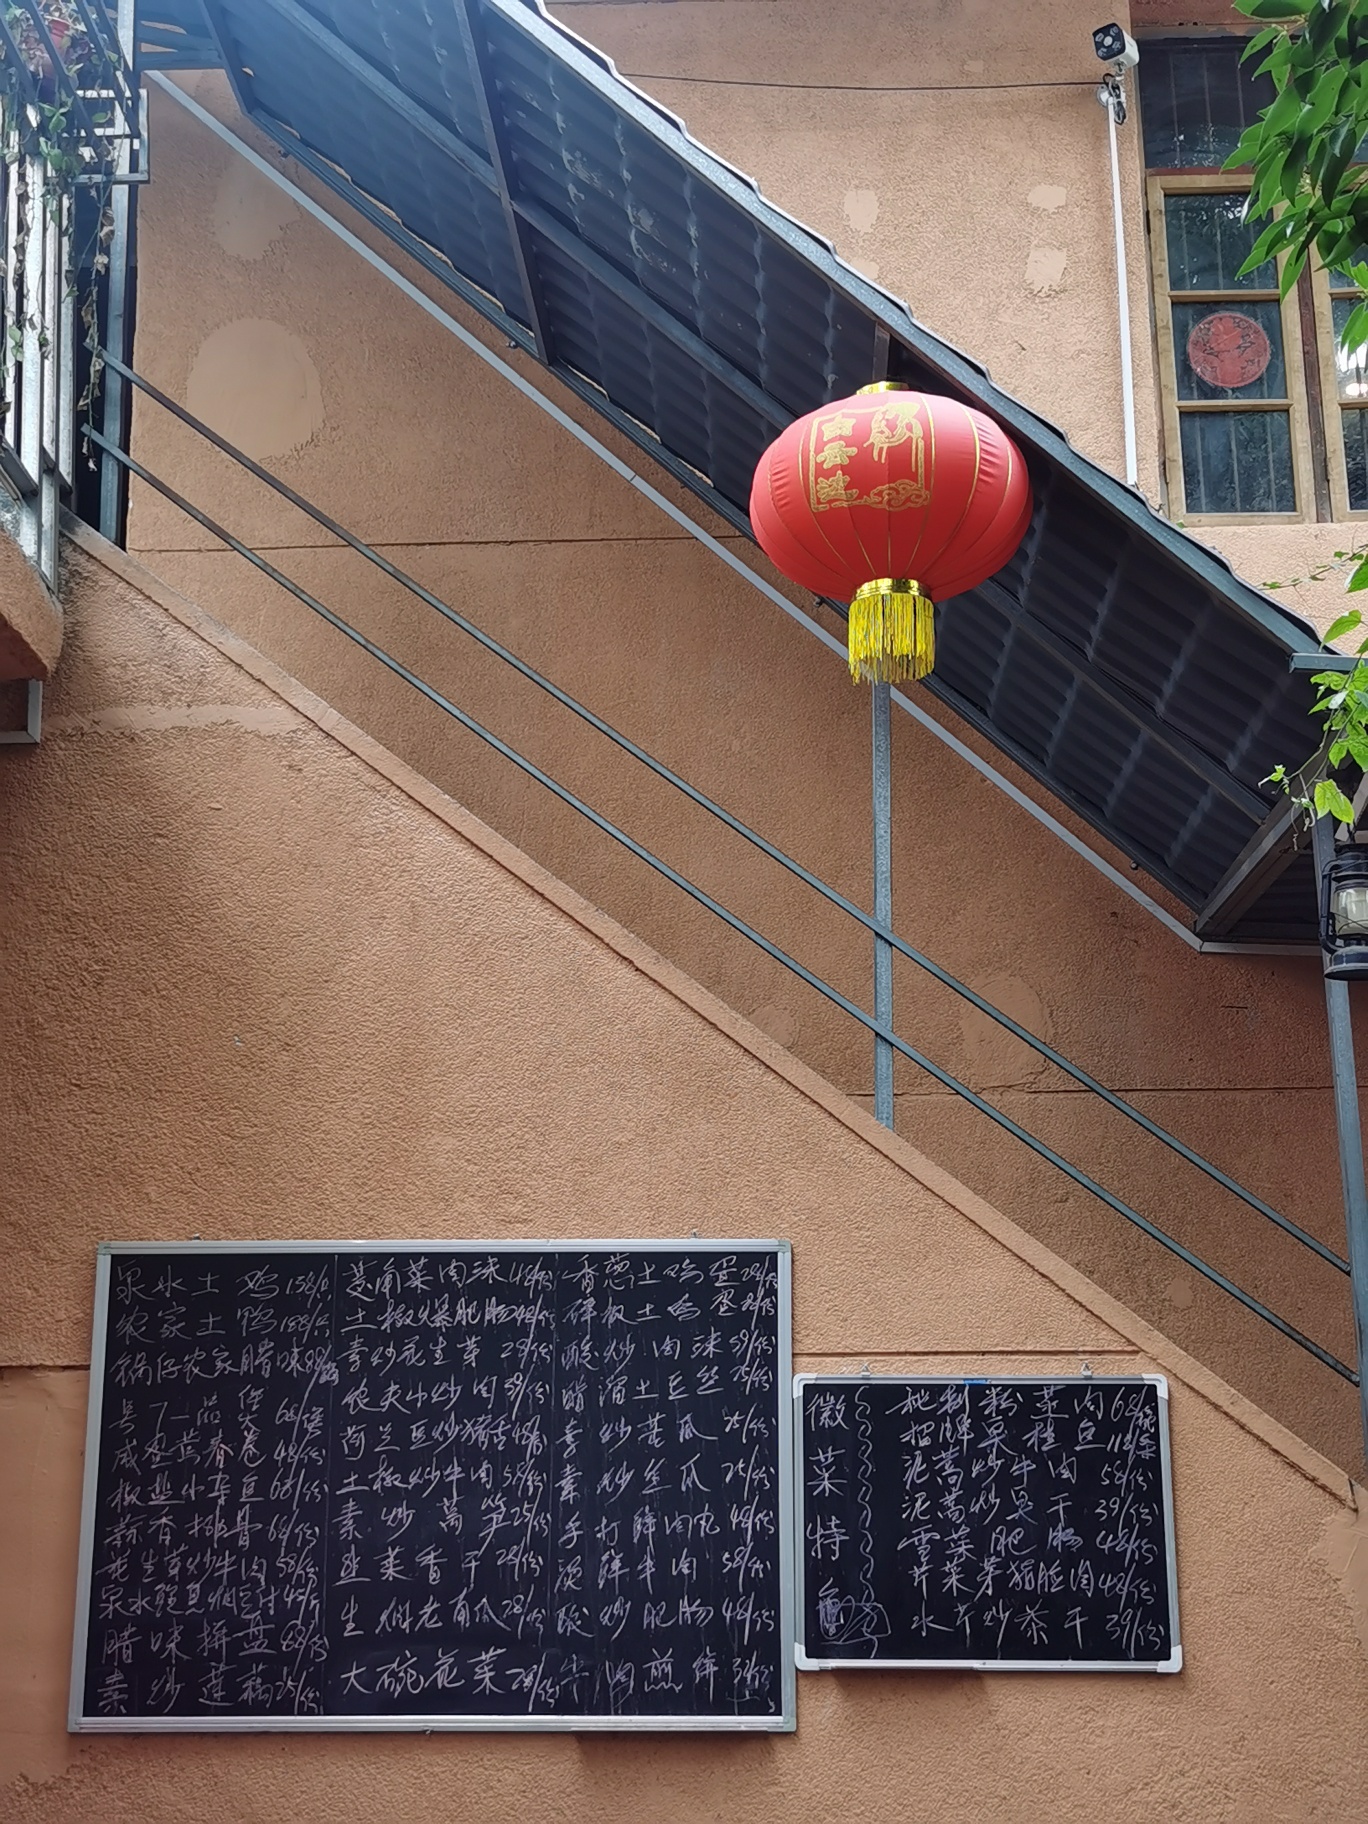 泉水土鸡158/只
农家土鸭188/只
锅仔农家腊味88/锅
68/煲
春卷48/份
椒盐小青豆68/份
蒜香排骨68/份
花生芽炒牛肉58/份
泉水
腊味拼盘68/份
素炒莲藕25/份
菱角菜肉沫48/份
土椒爆肥肠48/份
素炒花生芽28/份
农夫小炒肉39/份
荷兰豆炒猪舌48/份
土椒炒牛肉58/份
素炒莴笋25/份
韭菜香干28/份
生焗老南瓜28/份
大碗花菜28/份
香葱土鸡蛋28/份
土鸡蛋
酸炒肉沫39/份
醋溜土豆丝25/份
素炒苦瓜25/份
素炒丝瓜25/份
手打鲜肉丸48/份
鲜牛肉58/份
酸炒肥肠48/份
牛肉煎饼
徽菜特色
粉蒸肉68/份
泥蒿炒牛肉58/份
泥蒿炒臭干39/份
雪菜肥肠48/份
芹菜
水芹炒茶干39/份